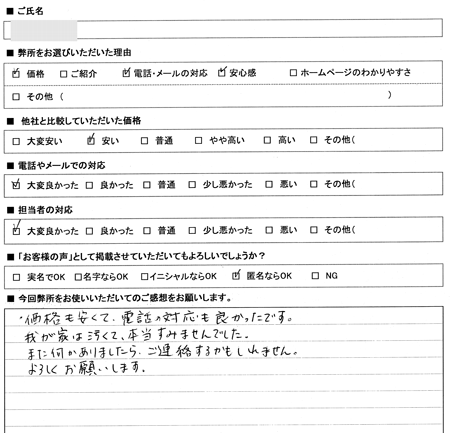 ■ ご氏名
■ 弊所をお選びいただいた理由
☑ 価格 □ ご紹介 ☑ 電話・メールの対応 ☑ 安心感 □ ホームページのわかりやすさ
□ その他 ( )
■ 他社と比較していただいた価格
□ 大変安い ☑ 安い □ 普通 □ やや高い □ 高い □ その他(
■ 電話やメールでの対応
☑ 大変良かった □ 良かった □ 普通 □ 少し悪かった □ 悪い □ その他(
■ 担当者の対応
☑ 大変良かった □ 良かった □ 普通 □ 少し悪かった □ 悪い □ その他(
■ 「お客様の声」として掲載させていただいてもよろしいでしょうか?
□ 実名でOK □ 名字ならOK □ イニシャルならOK ☑ 匿名ならOK □ NG
■ 今回弊所をお使いいただいてのご感想をお願いします。
・価格も安くて、電話の対応も良かったです。
我が家は汚くて、本当すみませんでした。
また何かありましたら、ご連絡するかもしれません。
よろしくお願いします。